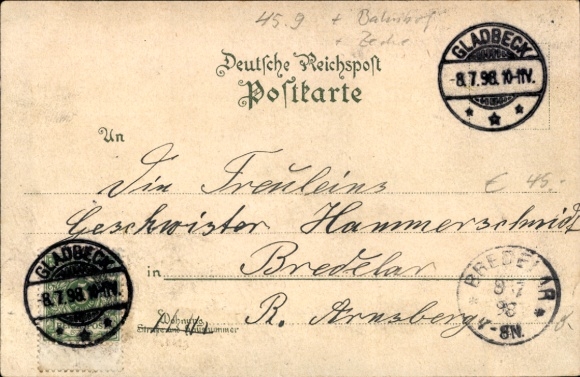 45.9 + Bahnhof
+ Zeche
Deutsche Reichspost
Postkarte
GLADBECK
8.7.98.10-11V.
An
Die Fräuleins
€ 45,-
Geschwister Hammerschmidt
in Bredelar
R. Arnsberg
Wohnung
Straße und Hausnummer
GLADBECK
8.7.98.10-11V.
BREDELAR
8 7
98
-8N.